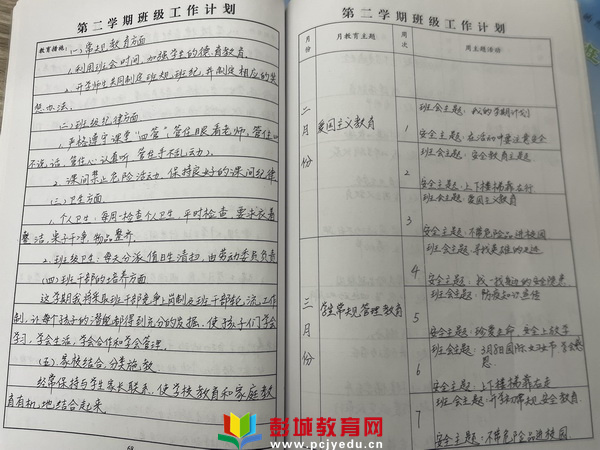 第二学期班级工作计划
教育措施：(一)常规教育方面
1.利用班会时间，加强学生的德育教育。
2.开学师生共同制定班规、班纪，并制定相应的奖
惩办法。
(二)班级纪律方面
1.严格遵守课堂“四管”管住眼看老师，管住口
不说话，管住心认真听，管住手不乱动）。
2.课间禁止危险活动，保持良好的课间纪律
(三)卫生方面
1.个人卫生：每周一检查个人卫生，平时检查，要求衣着
整洁，桌子干净，物品整齐。
2.班级卫生：每天分派值日生清扫，由劳动委员负责
(四)班干部的培养方面
这学期我将采取班干部竞争上岗制及班干部轮流工作
制，让每个孩子的潜能都得到充分的发掘，使孩子们学会
学习，学会生活，学会合作和学会管理。
(五)家校结合，分类施教
经常保持与学生家长联系，使学校教育和家庭教
育有机地结合起来。
第二学期班级工作计划
月份
月教育主题
周次
周主题活动
二月份
爱国主义教育
1
班会主题：我的学期计划
安全主题：在活动中要注意安全
2
班会主题：安全教育主题
安全主题：上下楼梯靠右行
3
班会主题：爱国主义教育
安全主题：不带危险品进校园
三月份
学生常规管理教育
4
班会主题：寻找英雄的足迹
安全主题：找一找身边的安全隐患
5
班会主题：防疫知识宣传
安全主题：珍爱生命 安全上放学
6
班会主题：3月8日国际妇女节 学会感恩
安全主题：上下楼梯靠右走
7
班会主题：开学初常规、安全教育
安全主题：不带危险品进校园
彭城教育网
www.pcjyedu.cn